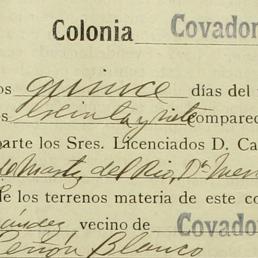 Colonia Covadon
os quince días del
os treinta y siete comparec
parte los Sres. Licenciados D. Ca
de Martz. del Rio, Dn
de los terrenos materia de este co
ández vecino de Covado
Peñón Blanco